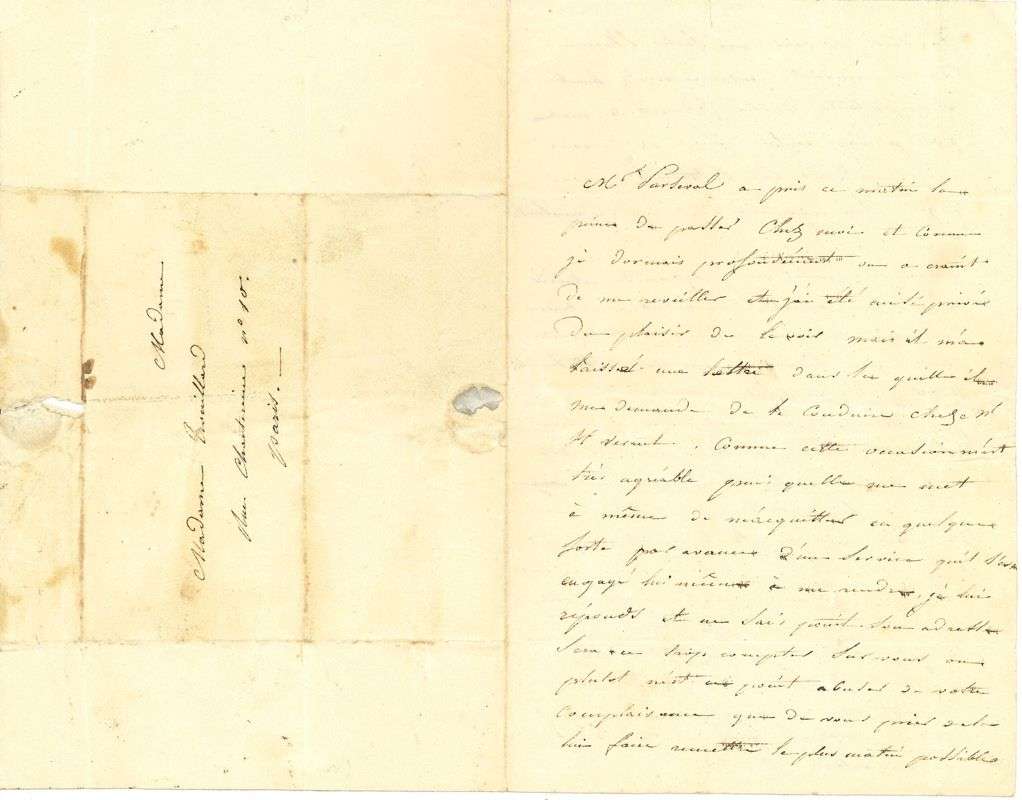 Madame
Madame Trouillard
Rue Christine nº 10.
Paris. —
Mr Parseval a pris ce matin la
peine de passer Chez moi et Comme
je dormais profondément on a craint
de me reveiller et j'ai été ainsi privée
Du plaisir de le voir mais il m'a
laissé une lettre dans la quelle il
me demande de le Conduire Chez Mr
. Comme cette occasion m'est
très agréable puis quelle me met
à même de m'acquitter en quelque
sorte par avance d'un service qu'il s'est
engagé lui même à me rendre, je lui
réponds et ne sais point son adresse
sera ce trop compter sur vous ou
plutot n'est ce point abuser de votre
Complaisance que de vous prier de le
lui faire remettre le plus matin possible